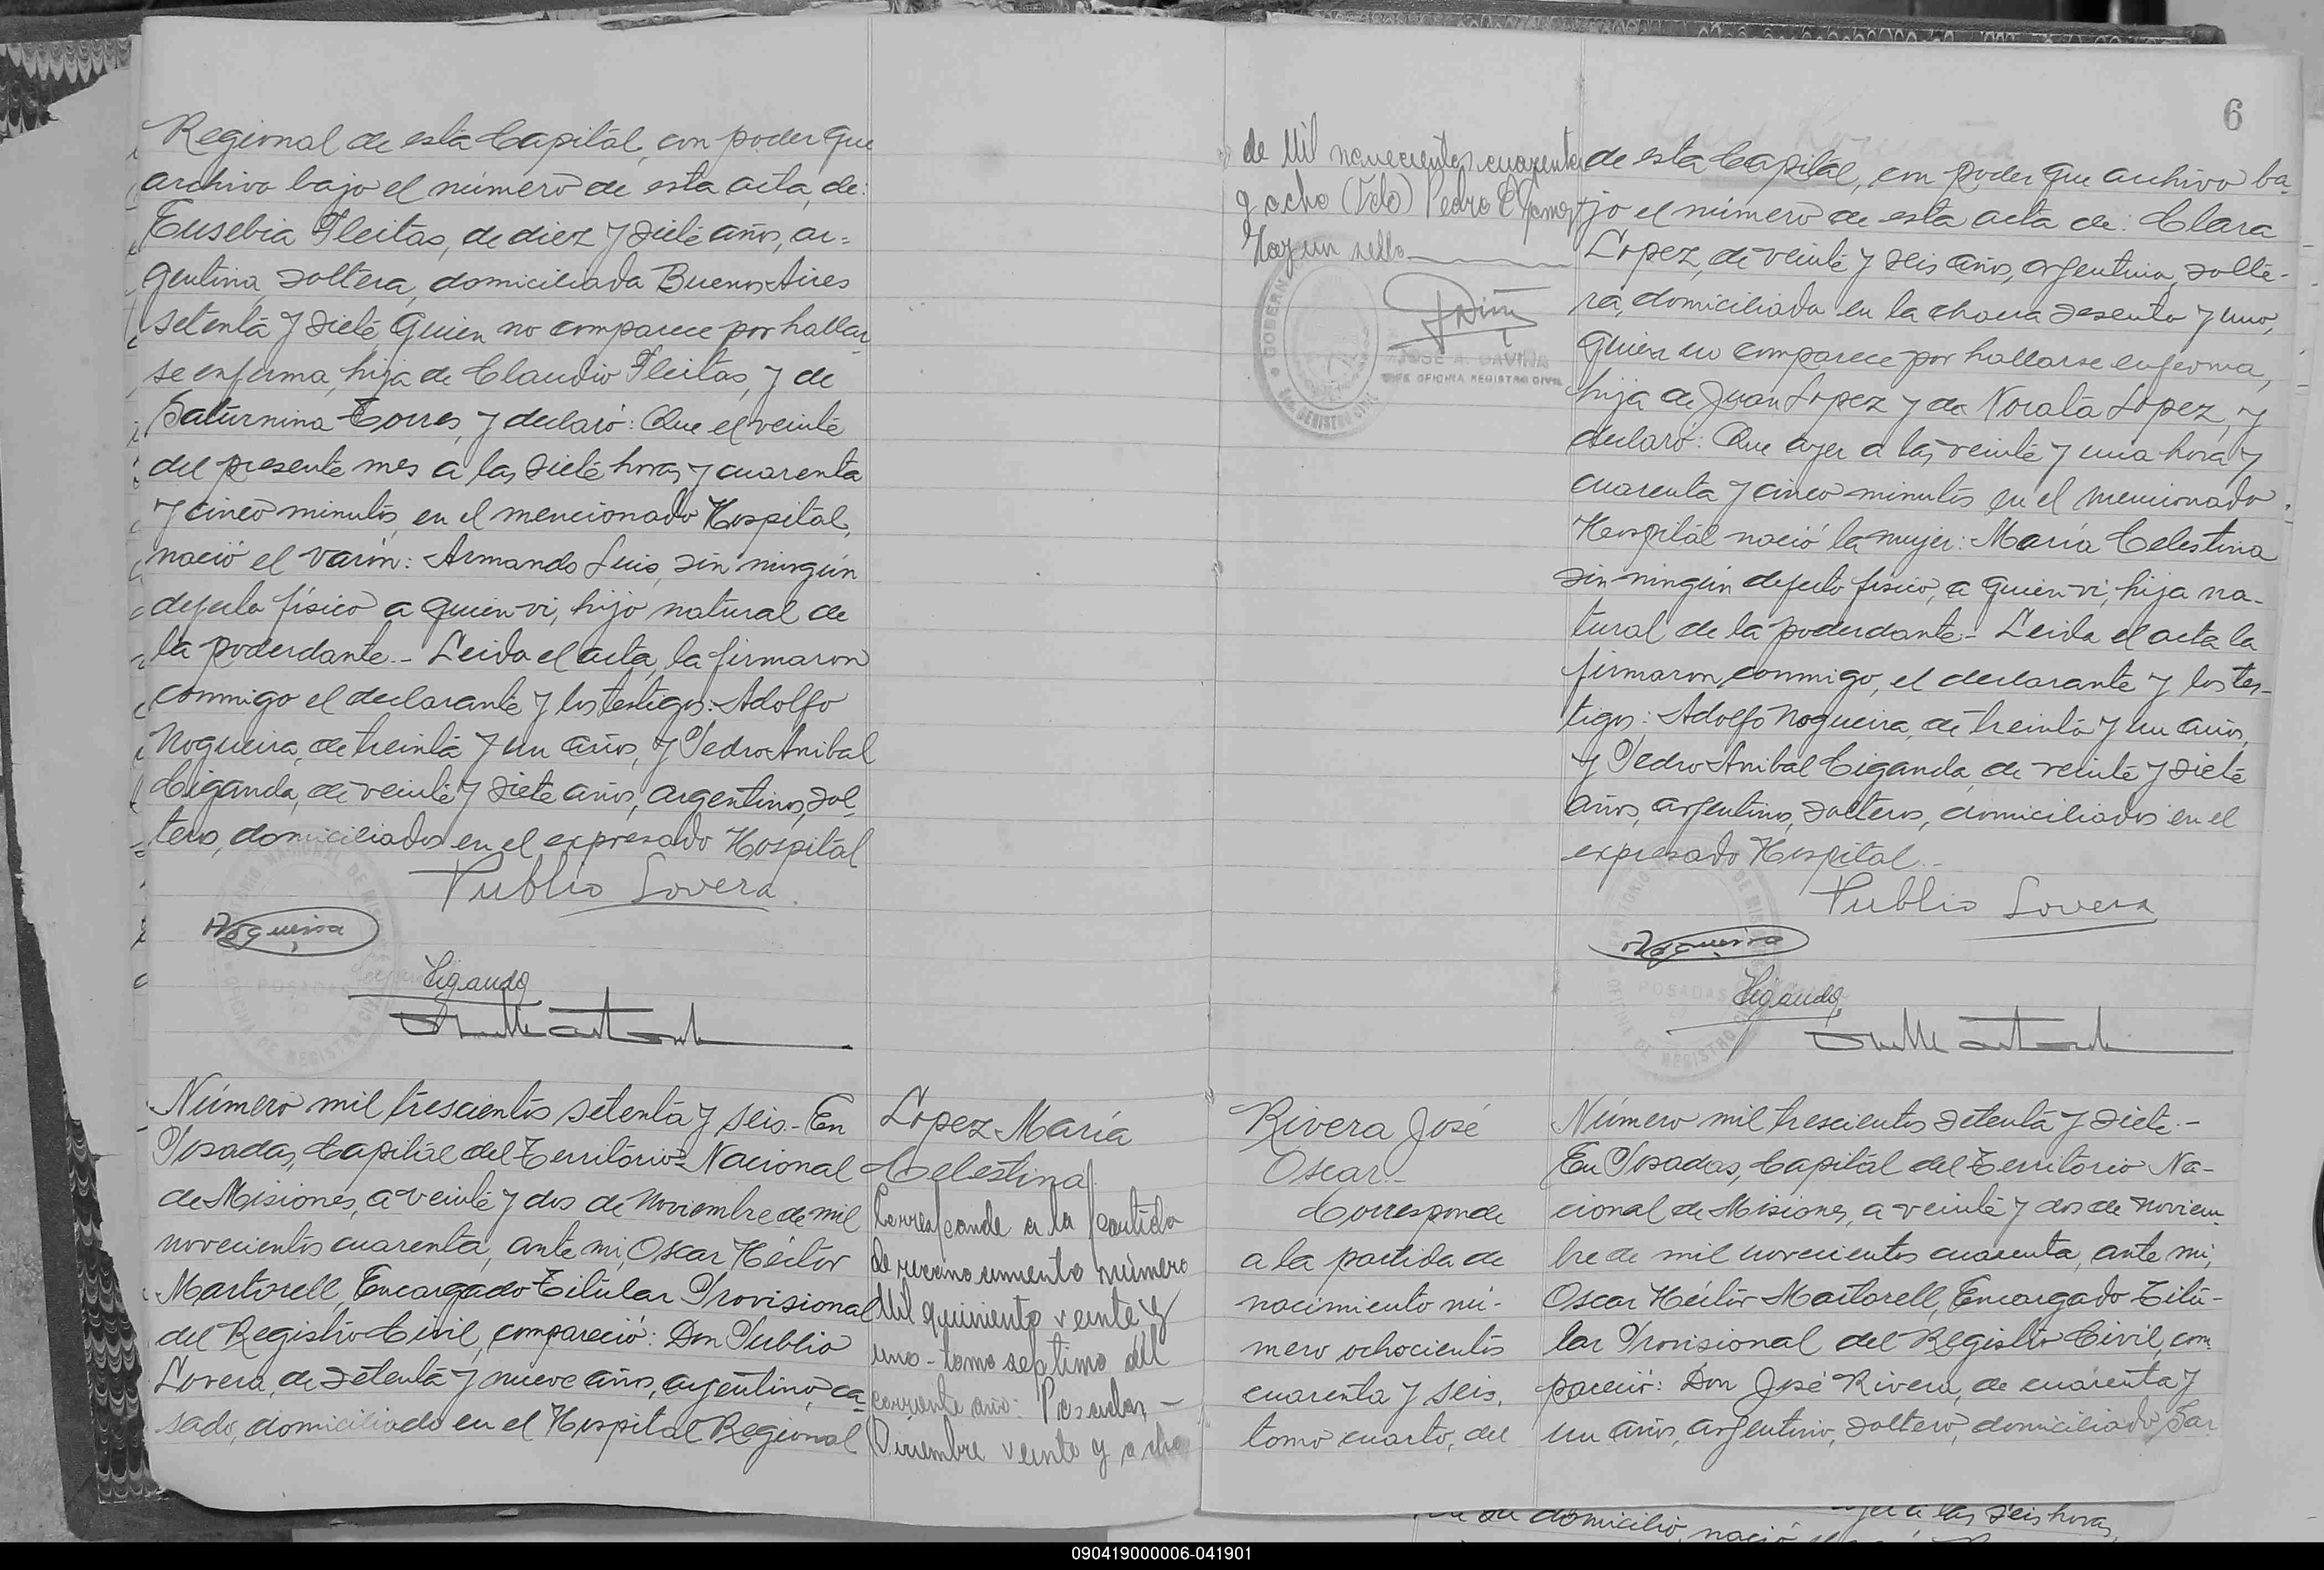 Regional de esta Capital, con poder que
archivo bajo el número de esta acta, de:
Eusebia Fleitas, de diez y siete años, ar=
gentina, soltera, domiciliada Buenos Aires
setenta y siete, quien no comparece por hallar
se enferma, hija de Claudio Fleitas, y de
Saturnina Torres, y declaró: Que el veinte
del presente mes a las siete horas y cuarenta
y cinco minutos, en el mencionado Hospital,
nació el varón: Armando Luis, sin ningún
defecto físico a quien vi, hijo natural de
la poderdante.- Leida el acta, la firmaron
conmigo el declarante y los testigos: Adolfo
Nogueira, de treinta y un años, y Pedro Anibal
Ciganda, de veinte y siete años, argentinos, sol-
teros, domiciliados en el expresado Hospital
Publio Lovera
Nogueira
Ciganda
Número mil trescientos setenta y seis.- En
Posadas, Capital del Territorio Nacional
de Misiones, a veinte y dos de Noviembre de mil
novecientos cuarenta, ante mi, Oscar Héctor
Martorell, Encargado Titular Provisional
del Registro Civil, compareció: Don Publio
Lovera, de setenta y nueve años, argentino, ca-
sado, domiciliado en el Hospital Regional
Lopez María
Celestina
Corresponde a la partida
de reconocimiento número
Mil quiniento veinte y
uno - tomo septimo del
corriente año: Posadas, -
Diciembre veinte y ocho
de Mil novecientos cuarenta
y ocho (Fdo) Pedro C Gomez
Hay un sello
JOSE A. GAVIÑA
JEFE OFICINA REGISTRO CIVIL
6
de esta Capital, con poder que archivo ba-
jo el número de esta acta de: Clara
Lopez, de veinte y seis años, argentina, solte-
ra, domiciliada en la chacra sesenta y uno,
quien no comparece por hallarse enferma,
hija de Juan Lopez y de Norata Lopez, y
declaró: Que ayer a las veinte y una hora y
cuarenta y cinco minutos en el mencionado
Hospital nació la mujer: María Celestina
sin ningún defecto físico, a quien vi, hija na-
tural de la poderdante.- Leida el acta la
firmaron conmigo, el declarante y los tes-
tigos: Adolfo Nogueira, de treinta y un años,
y Pedro Anibal Ciganda, de veinte y siete
años, argentinos, solteros, domiciliados en el
expresado Hospital.-
Publio Lovera
Nogueira
Ciganda
Rivera José
Oscar.-
Corresponde
a la partida de
nacimiento nú-
mero ochocientos
cuarenta y seis,
tomo cuarto, del
Número mil trescientos setenta y siete.-
En Posadas, Capital del Territorio Na-
cional de Misiones, a veinte y dos de Noviem-
bre de mil novecientos cuarenta, ante mi,
Oscar Héctor Martorell, Encargado Titu-
lar Provisional del Registro Civil, com
pareció: Don José Rivera, de cuarenta y
un años, argentino, soltero, domiciliado Sar
su domicilio, nació
a las seis horas,
090419000006-041901